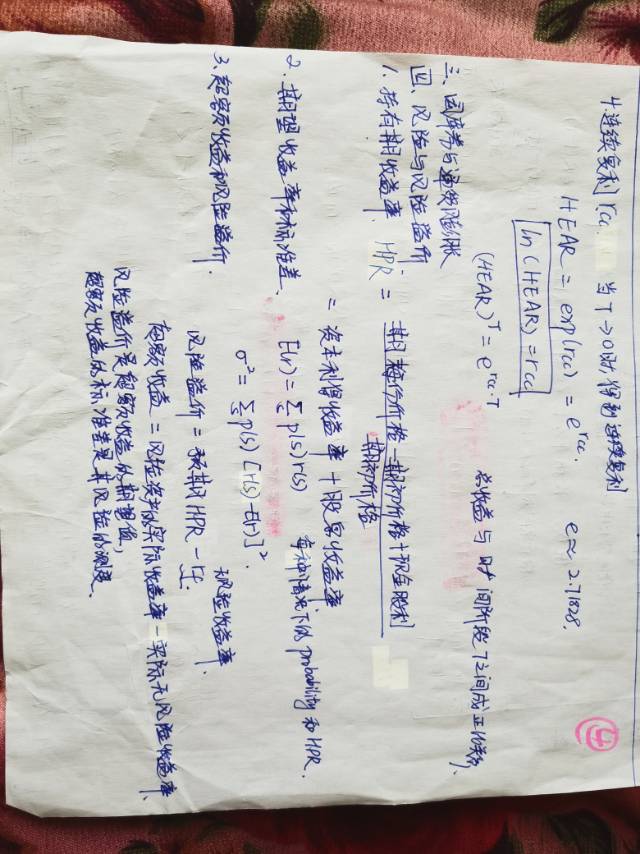 ④
4.连续复利 rcc. 当T→0时,得到连续复利
HEAR = exp(rcc) = e^rcc. e≈2.71828.
ln(HEAR) = rcc
(HEAR)^T = e^rcc·T 总收益与时间阶段T之间成正比
三、国库券与通货膨胀
四、风险与风险溢价
1.持有期收益率 HPR = 期末价格-期初价格+现金股利
期初价格
= 资本利得收益率+股息收益率
2.期望收益率和标准差. E(r) = Σ p(s) r(s) 每种情况下的 probability 和 HPR.
σ² = Σ p(s) [r(s)-E(r)]².
3.超额收益和风险溢价. 风险溢价 = 预期HPR - rf. 风险收益率
超额收益 = 风险资产的实际收益率-实际无风险收益率.
风险溢价是超额收益的期望值,
超额收益的标准差是其风险的测度.